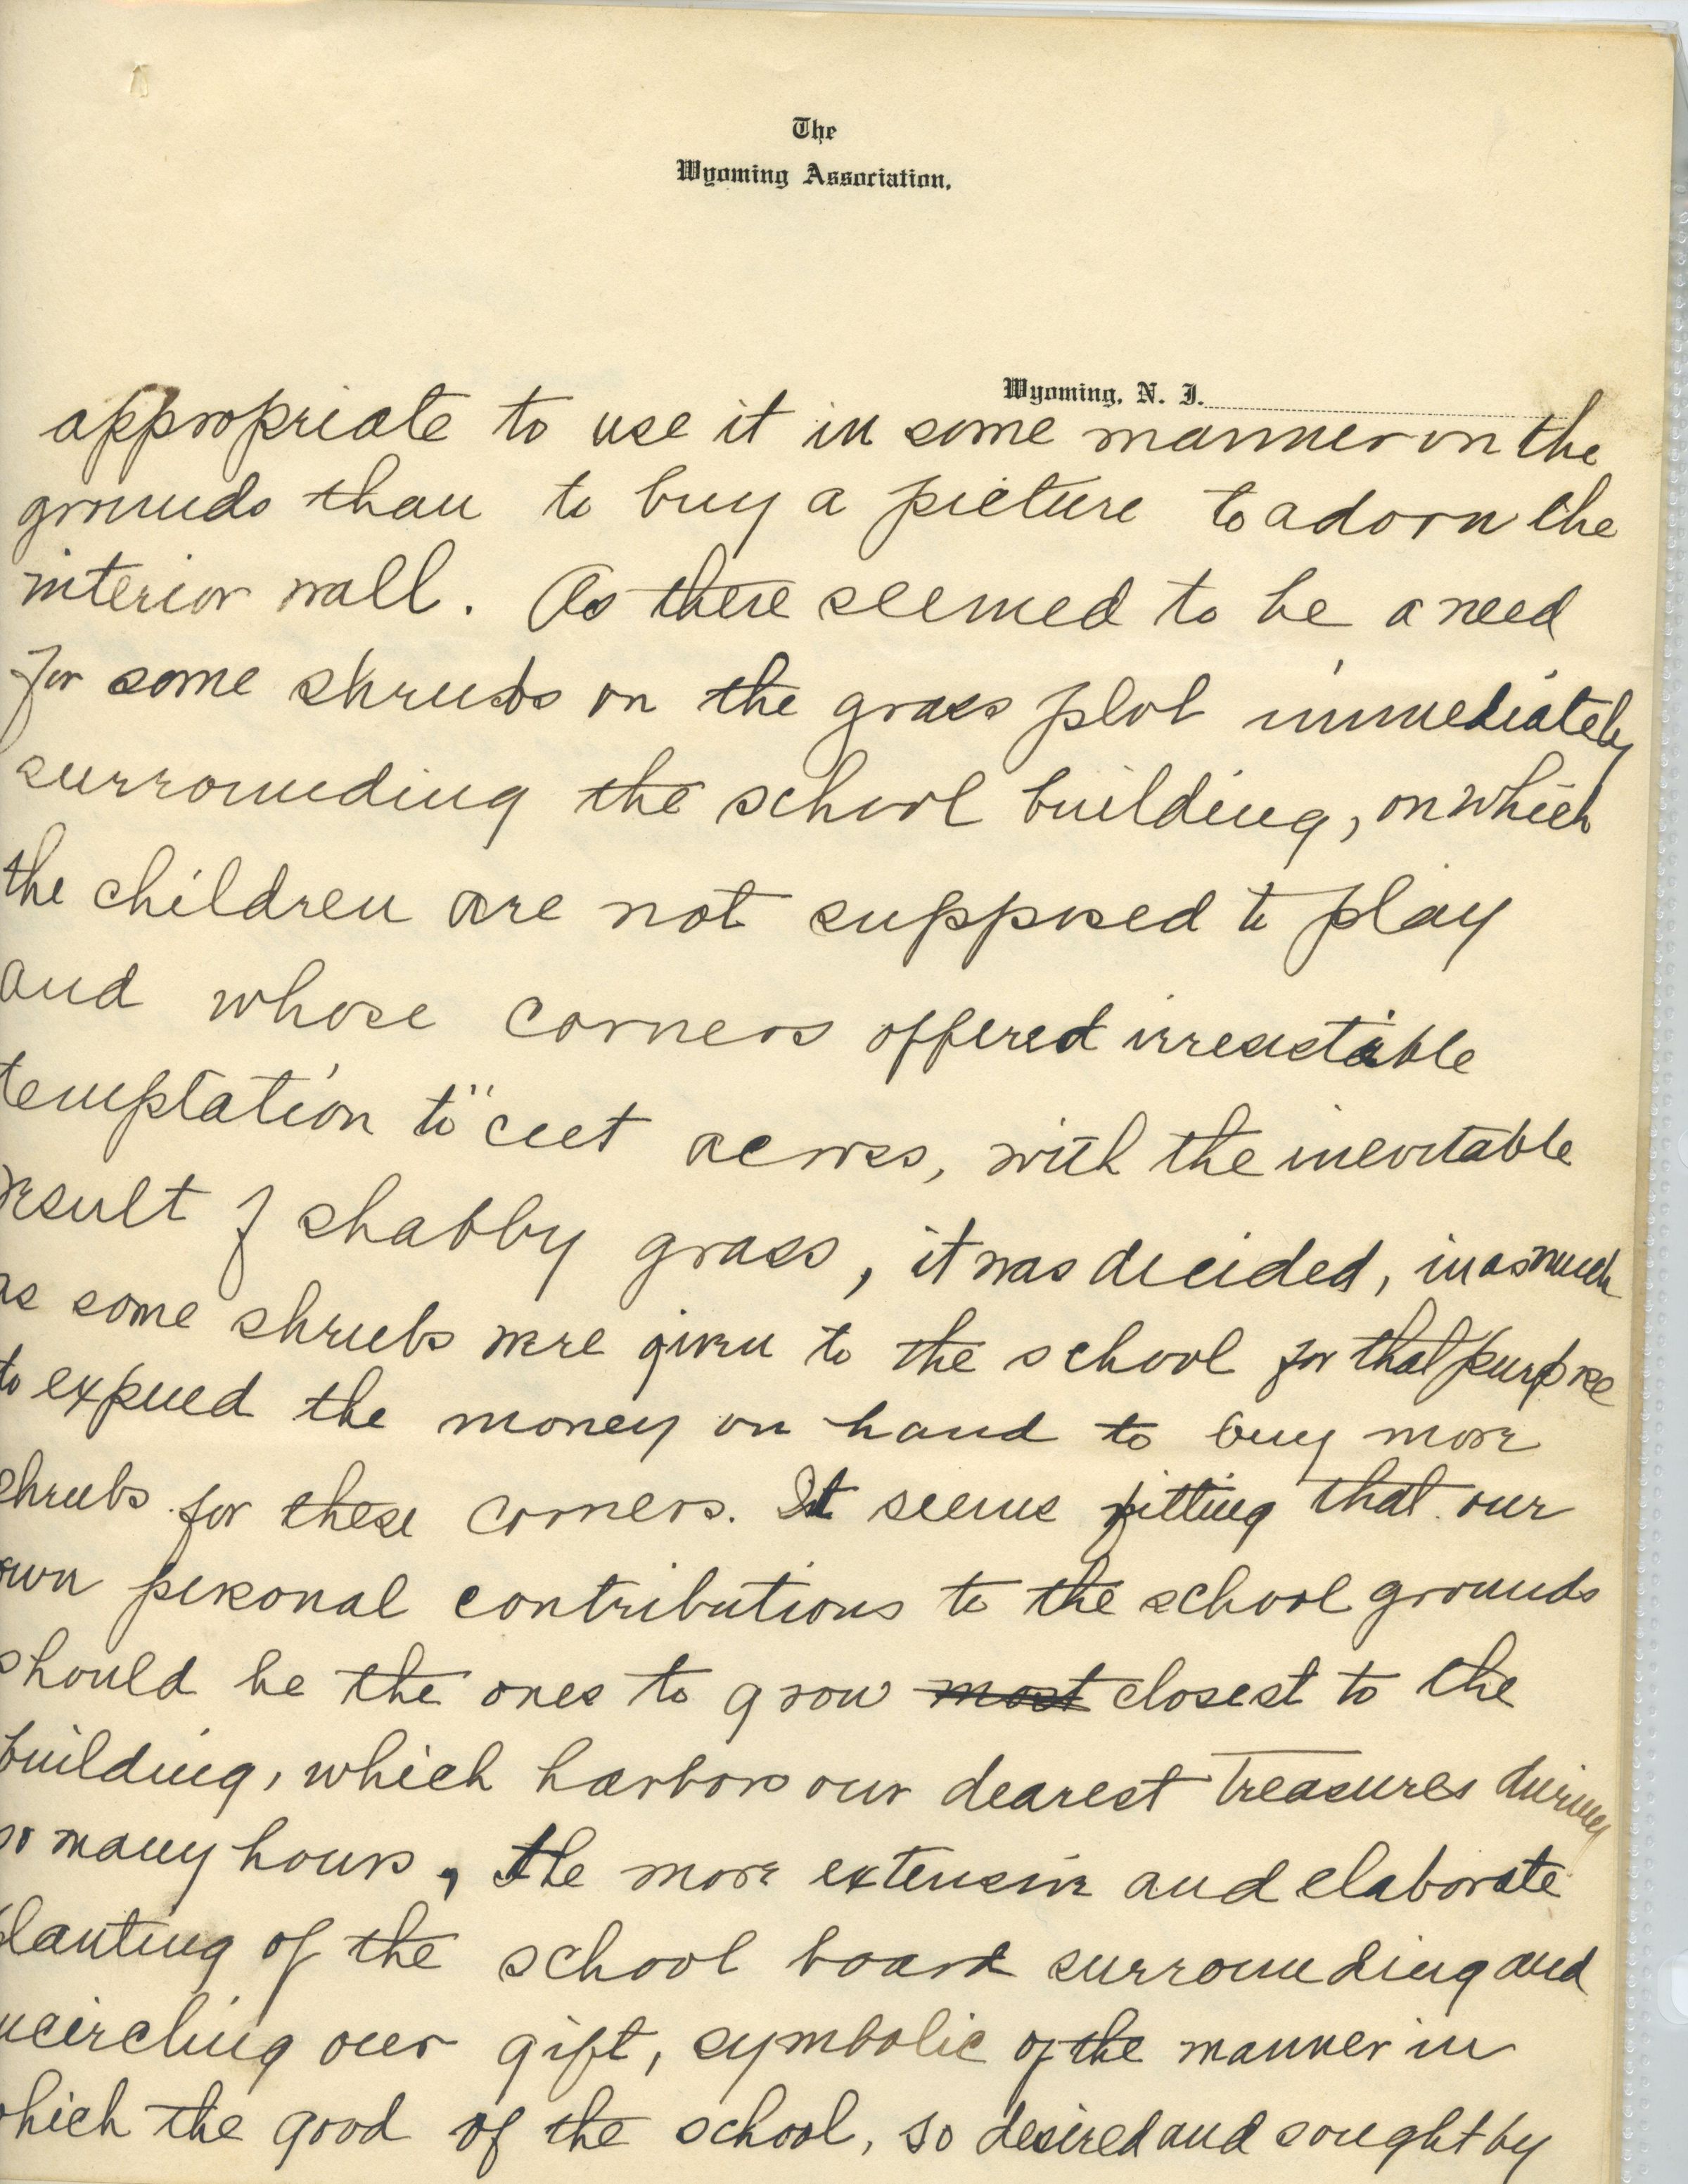 The
Wyoming Association.
Wyoming, N. J.
appropriate to use it in some manner on the
grounds than to buy a picture to adorn the
interior wall. As there seemed to be a need
for some shrubs on the grass plot immediately
surrounding the school building, on which
the children are not supposed to play
and whose corners offered irresistible
temptation to "cut across, with the inevitable
result of shabby grass, it was decided, inasmuch
as some shrubs were given to the school for that purpose
to expend the money on hand to buy more
shrubs for these corners. It seems fitting that our
own personal contributions to the school grounds
should be the ones to grow most closest to the
building, which harbors our dearest treasures during
so many hours, the more extensive and elaborate
planting of the school board surrounding and
ncircling our gift, symbolic of the manner in
which the good of the school, so desired and sought by